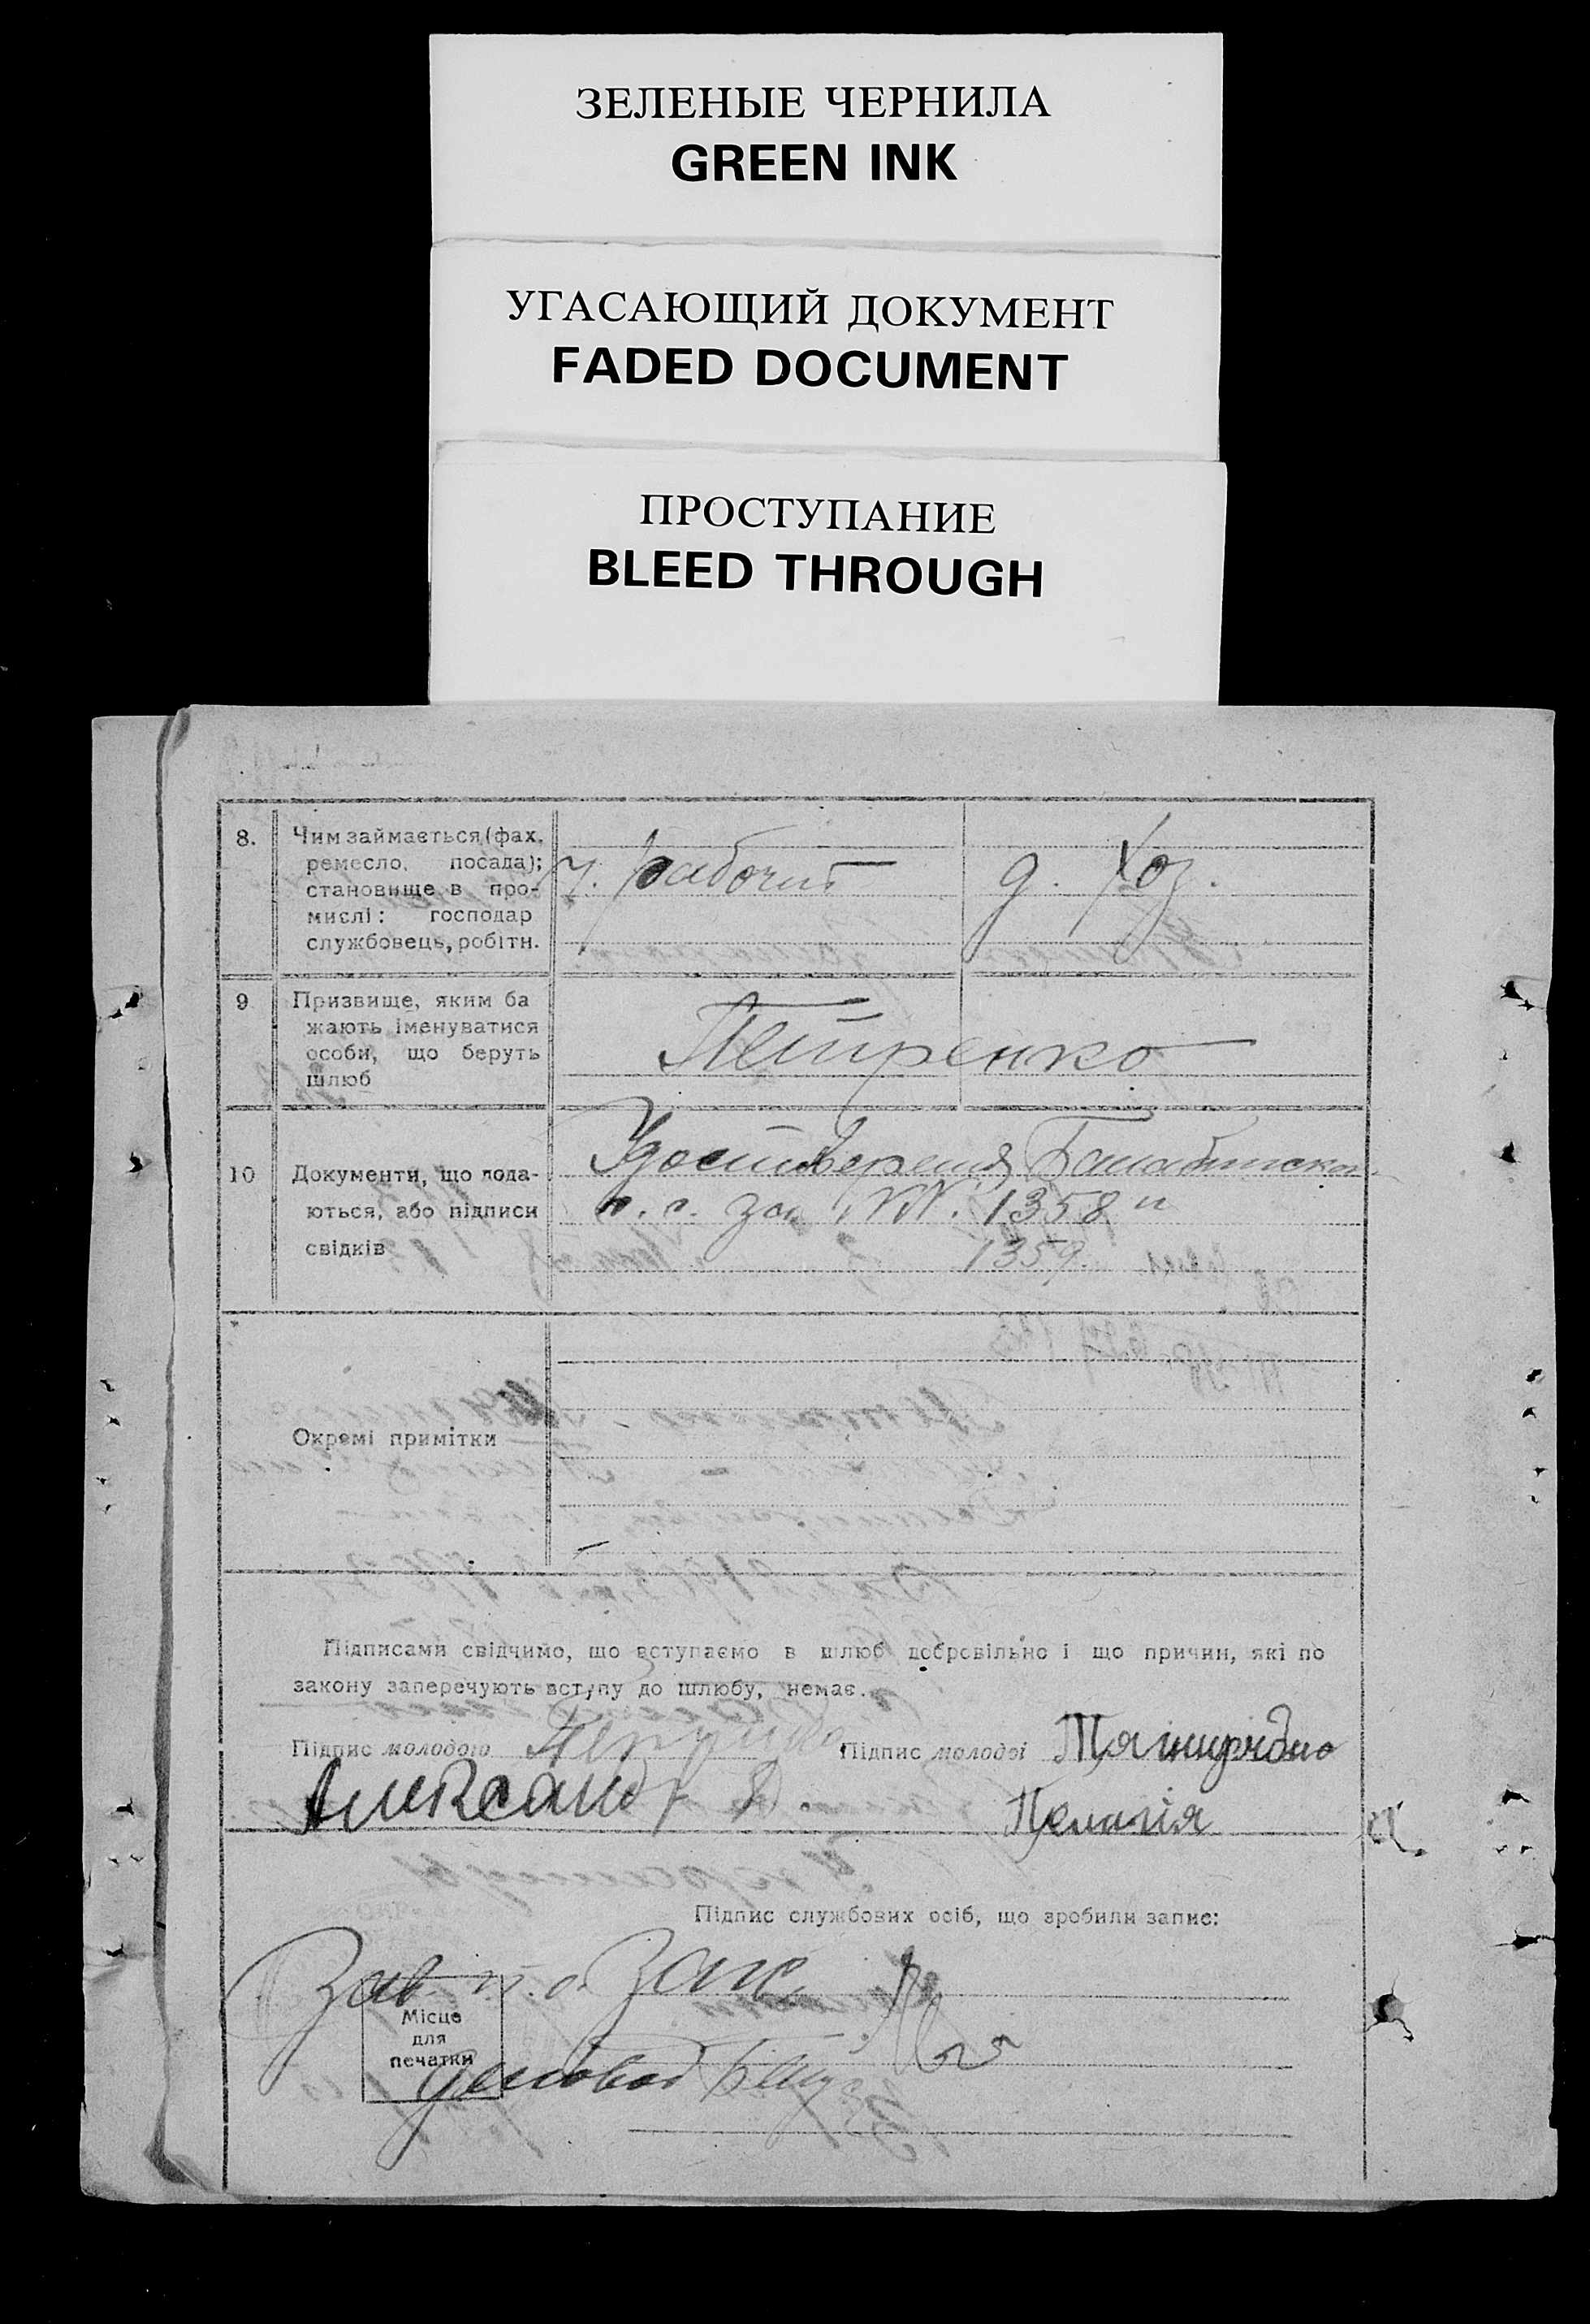 ЗЕЛЕНЫЕ ЧЕРНИЛА
GREEN INK
УГАСАЮЩИЙ ДОКУМЕНТ
FADED DOCUMENT
ПРОСТУПАНИЕ
BLEED THROUGH
8. Чим займається (фах,
ремесло, посада);
становище в про-
мислі: господар
службовець, робітн.
рабочий
д. хоз.
9 Призвище, яким ба
жають іменуватися
особи, що беруть
шлюб
Петренко
10 Документи, що пода-
ються, або підписи
свідків
Удостоверения
за NN. 1358 и
1359.
Окремі примітки
Підписами свідчимо, що вступаємо в шлюб добровільно і що причин, які по
закону заперечують вступу до шлюбу, немає.
Підпис молодого Петренко
Александр
Підпис молодої
Пелагія
Підпис службових осіб, що зробили запис:
Зав. п. о. Загс
Місце
для
печатки